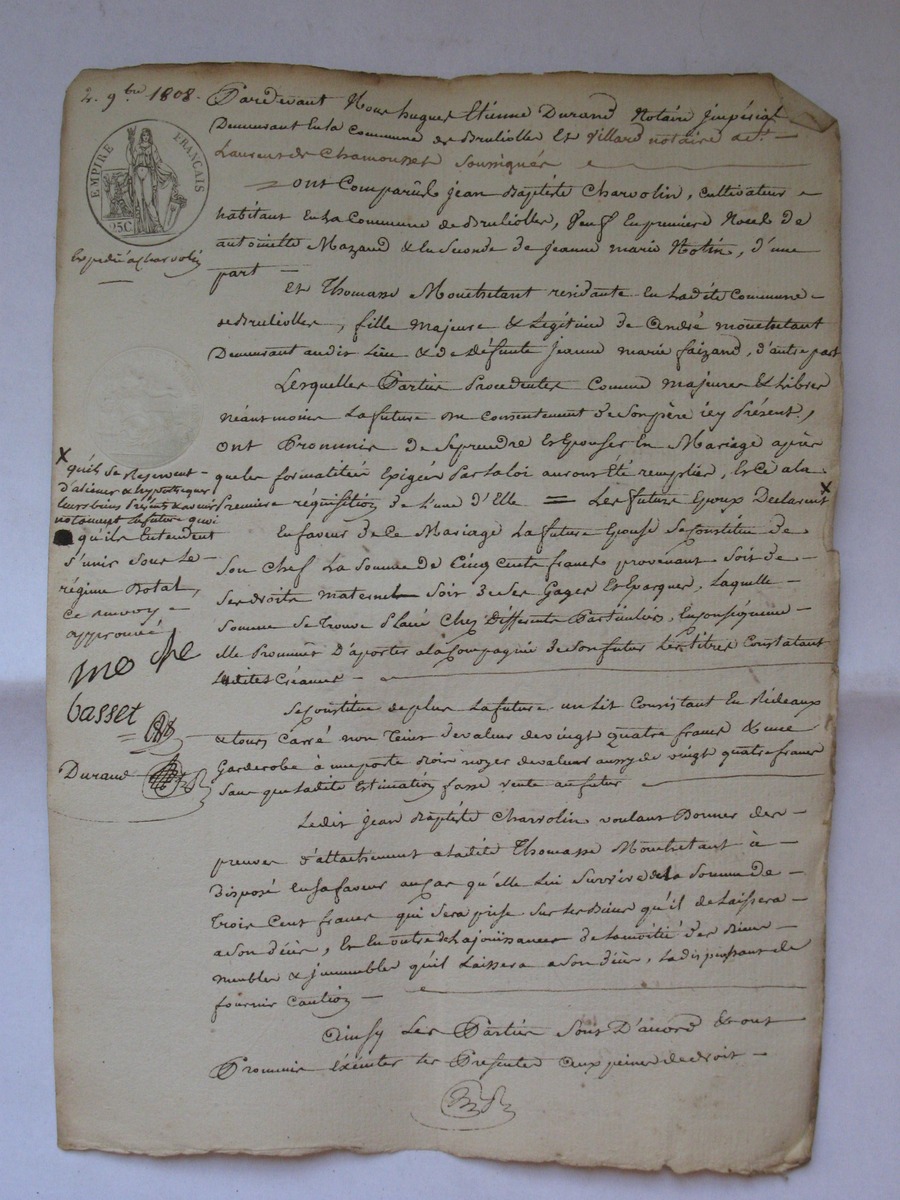 2. 9bre 1808.
EMPIRE FRANÇAIS
25C
Expédié a Charvolin
Pardevant Nous hugues Etienne Durand Notaire Jmpérial
Demeurant En la Commune de Brullolles Et Villard notaire a St
Laurent de Chamousset Soussignés
ont Comparûs jean Baptiste Charvolin, cultivateur
habitant En La Commune de Brullolles, Veuf En premiere Noces de
antoinette Mazand & En Seconde de Jeanne marie Notin, d'une
part
Et Thomasse Montretant residante En Ladite Commune
de Brullolles, fille Majeure & Légitime de André montretant
Demeurant audit Lieu & de défunte Jeanne marie faizand, d'autre part
Lesquelles Parties Procedentes Comme majeures Et Libres
Néantmoins La future du consentement De Son père icy Présent,
ont Prommis De Se prendre Et Epouser En Mariage après
que les formalitées Exigées Par La loi auront Eté remplies, Et Ce a la
Premiere réquisition De L'une d'Elle = Les future Epoux Declarent X
X qu'ils Se Reservent
d'aliener & hypothequer
leurs biens Présents & avenir
notament La future quoi
qu'ils Entendent
S'unir Sous Le
régime Dotal,
Ce renvoy
approuvé
En faveur de Ce Mariage La future Epouse Se Constitue De
Son Chef La Somme de Cinq Cents francs provenant Soit de
Ses droits maternels Soit De Ses Gages Et Epargnes, Laquelle
Somme Se Trouve Placée Chez Differents Particuliers, En Conséquence
Elle Prommet D'aporter a la Compagnie de Son futur Les titres Constatant
Lesdites Créances
me che
basset
Durand
Se Constitue de plus La future un Lit Consistant En Rideaux
& tours Carré non Teint de valeur de vingt quatre francs & une
Garderobe à une porte Bois noyer de valeur aussy de vingt quatre francs
Sans que Ladite Estimation fasse vente au futur
Ledit jean Baptiste Charvolin voulant Donner des
preuves d'attachement a Ladite Thomasse Montretant à
Disposé En Sa faveur au Cas qu'elle Lui Survive de La Somme De
Trois Cent francs qui Sera prise Sur Les Biens qu'il delaissera
a Son décès, Et En outre de La jouissance de La moitié des Biens
Meubles & jmmeubles qu'il Laissera a Son décès, La dispensant de
fournir Caution
Ainsy Les Parties Sont D'accord & ont
Prommis Exécuter Les Presentes aux peines de droit